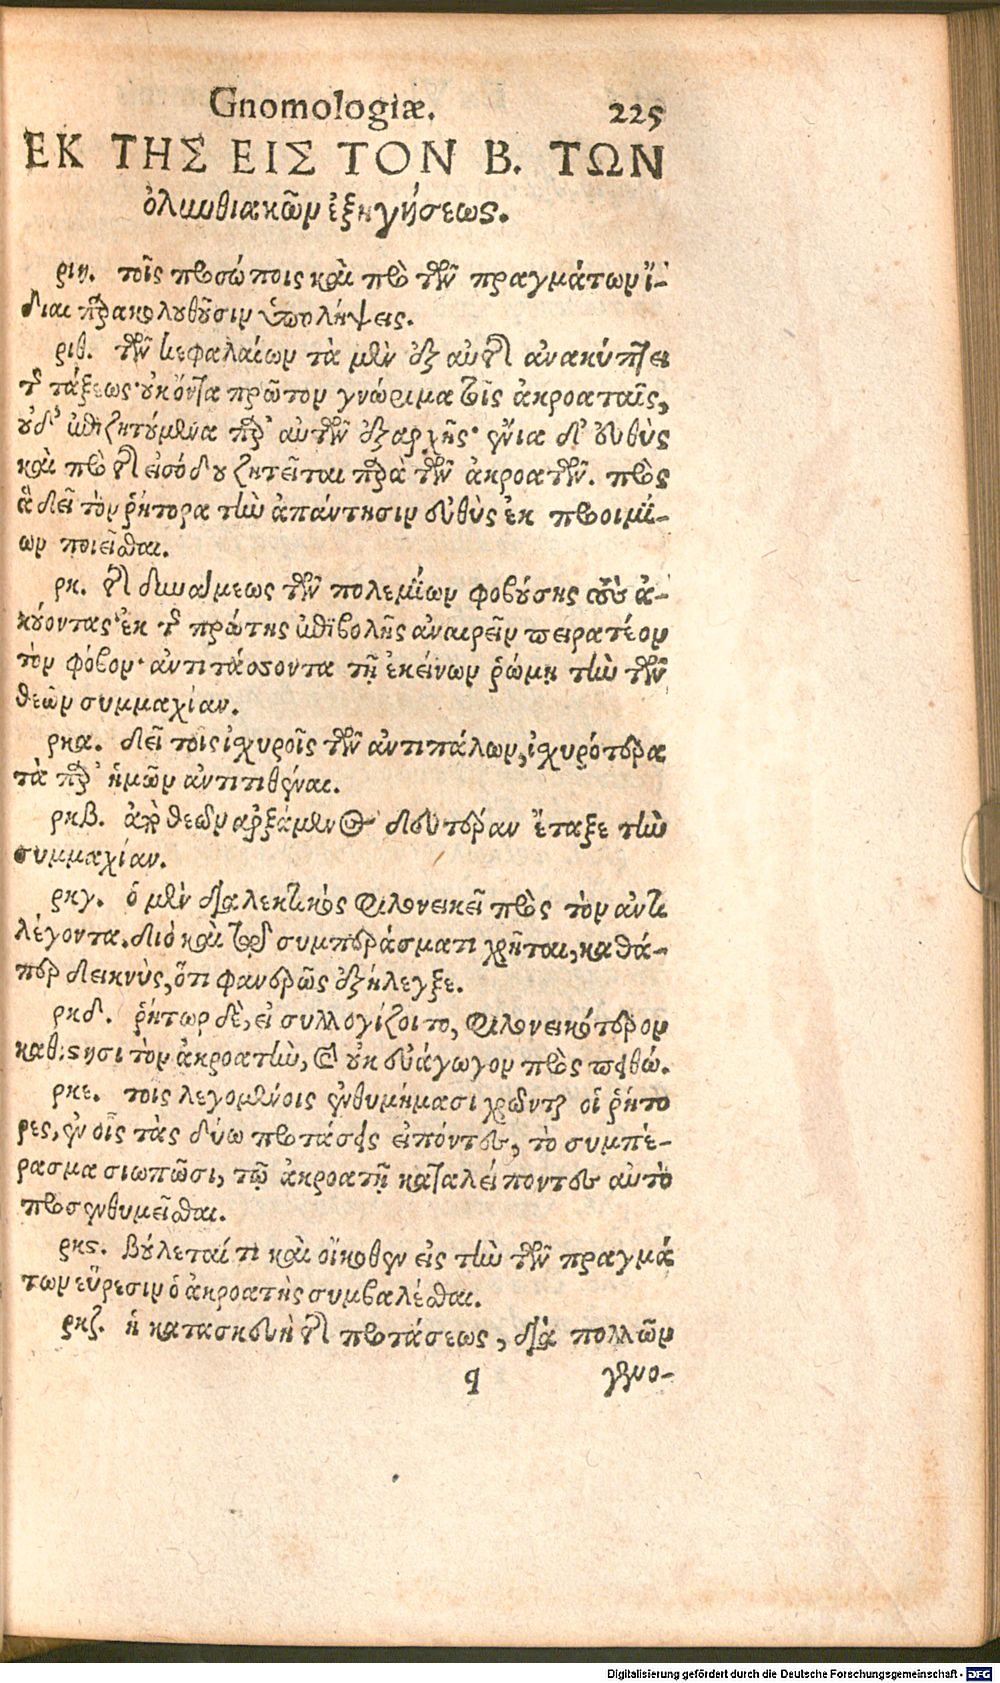 Gnomologiæ. 225
ΕΚ ΤΗΣ ΕΙΣ ΤΟΝ Β. ΤΩΝ
ὀλυνθιακῶν ἐξηγήσεως.
ριη. τοῖς προσώποις καὶ πρὸ τῶν πραγμάτων ἴ-
διαι παρακολουθοῦσιν ὑπολήψεις.
ριθ. τῶν κεφαλαίων τὰ μὲν ἐξ αὐτῆς ἀνακύπτει
τῆς τάξεως· οὐκ ὄντα πρῶτον γνώριμα τοῖς ἀκροαταῖς,
οὐδ' ἐπιζητούμενα παρ' αὐτῶν ἐξαρχῆς· ἔνια δ' εὐθὺς
καὶ πρὸ τῆς εἰσόδου ζητεῖται παρὰ τῶν ἀκροατῶν. πρὸς
ἃ δεῖ τὸν ῥήτορα τὴν ἀπάντησιν εὐθὺς ἐκ προοιμί-
ων ποιεῖσθαι.
ρκ. τῆς δυνάμεως τῶν πολεμίων φοβούσης τοὺς ἀ-
κούοντας· ἐκ τῆς πρώτης ἐπιβολῆς ἀναιρεῖν πειρατέον
τὸν φόβον· ἀντιτάσσοντα τῇ ἐκείνων ῥώμῃ τὴν τῶν
θεῶν συμμαχίαν.
ρκα. δεῖ τοῖς ἰσχυροῖς τῶν ἀντιπάλων, ἰσχυρότερα
τὰ παρ' ἡμῶν ἀντιτιθέναι.
ρκβ. ἀπὸ θεῶν ἀρξάμενος δευτέραν ἔταξε τὴν
συμμαχίαν.
ρκγ. ὁ μὲν διαλεκτικὸς φιλονεικεῖ πρὸς τὸν ἀντι
λέγοντα. διὸ καὶ τῷ συμπεράσματι χρῆται, καθά-
περ δεικνὺς, ὅτι φανερῶς ἐξήλεγξε.
ρκδ. ῥήτωρ δὲ, εἰ συλλογίζοιτο, φιλονεικότερον
καθίστησι τὸν ἀκροατὴν, καὶ οὐκ εὐάγωγον πρὸς πειθώ.
ρκε. τοῖς λεγομένοις ἐνθυμήμασι χρῶνται οἱ ῥήτο
ρες, ἐν οἷς τὰς δύω προτάσεις εἰπόντες, τὸ συμπέ-
ρασμα σιωπῶσι, τῷ ἀκροατῇ καταλείποντες αὐτὸ
προσενθυμεῖσθαι.
ρκς. βούλεταί τι καὶ οἴκοθεν εἰς τὴν τῶν πραγμά
των εὕρεσιν ὁ ἀκροατὴς συμβαλέσθαι.
ρκζ. ἡ κατασκευὴ τῆς προτάσεως, διὰ πολλῶν
q γενο-
Digitalisierung gefördert durch die Deutsche Forschungsgemeinschaft - DFG